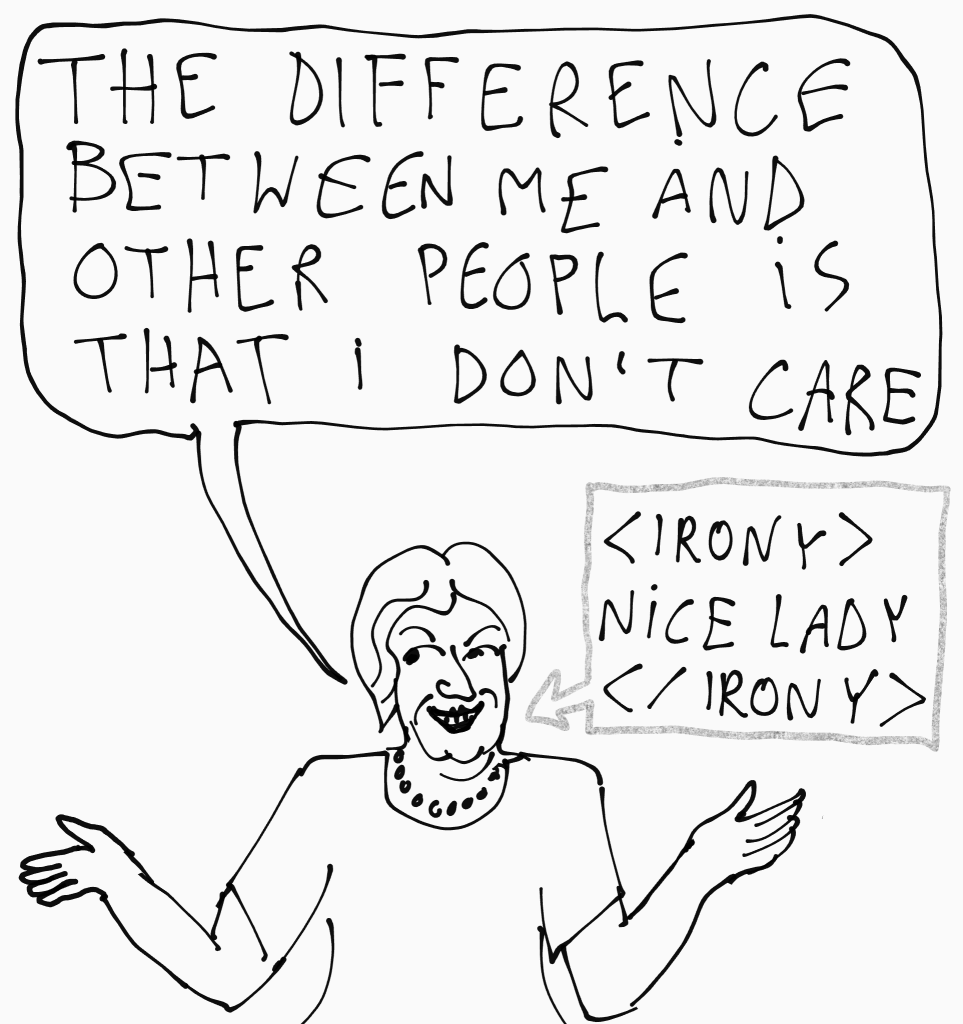 THE DIFFERENCE
BETWEEN ME AND
OTHER PEOPLE iS
THAT i DON'T CARE
<IRONY>
NiCE LADY
</IRONY>